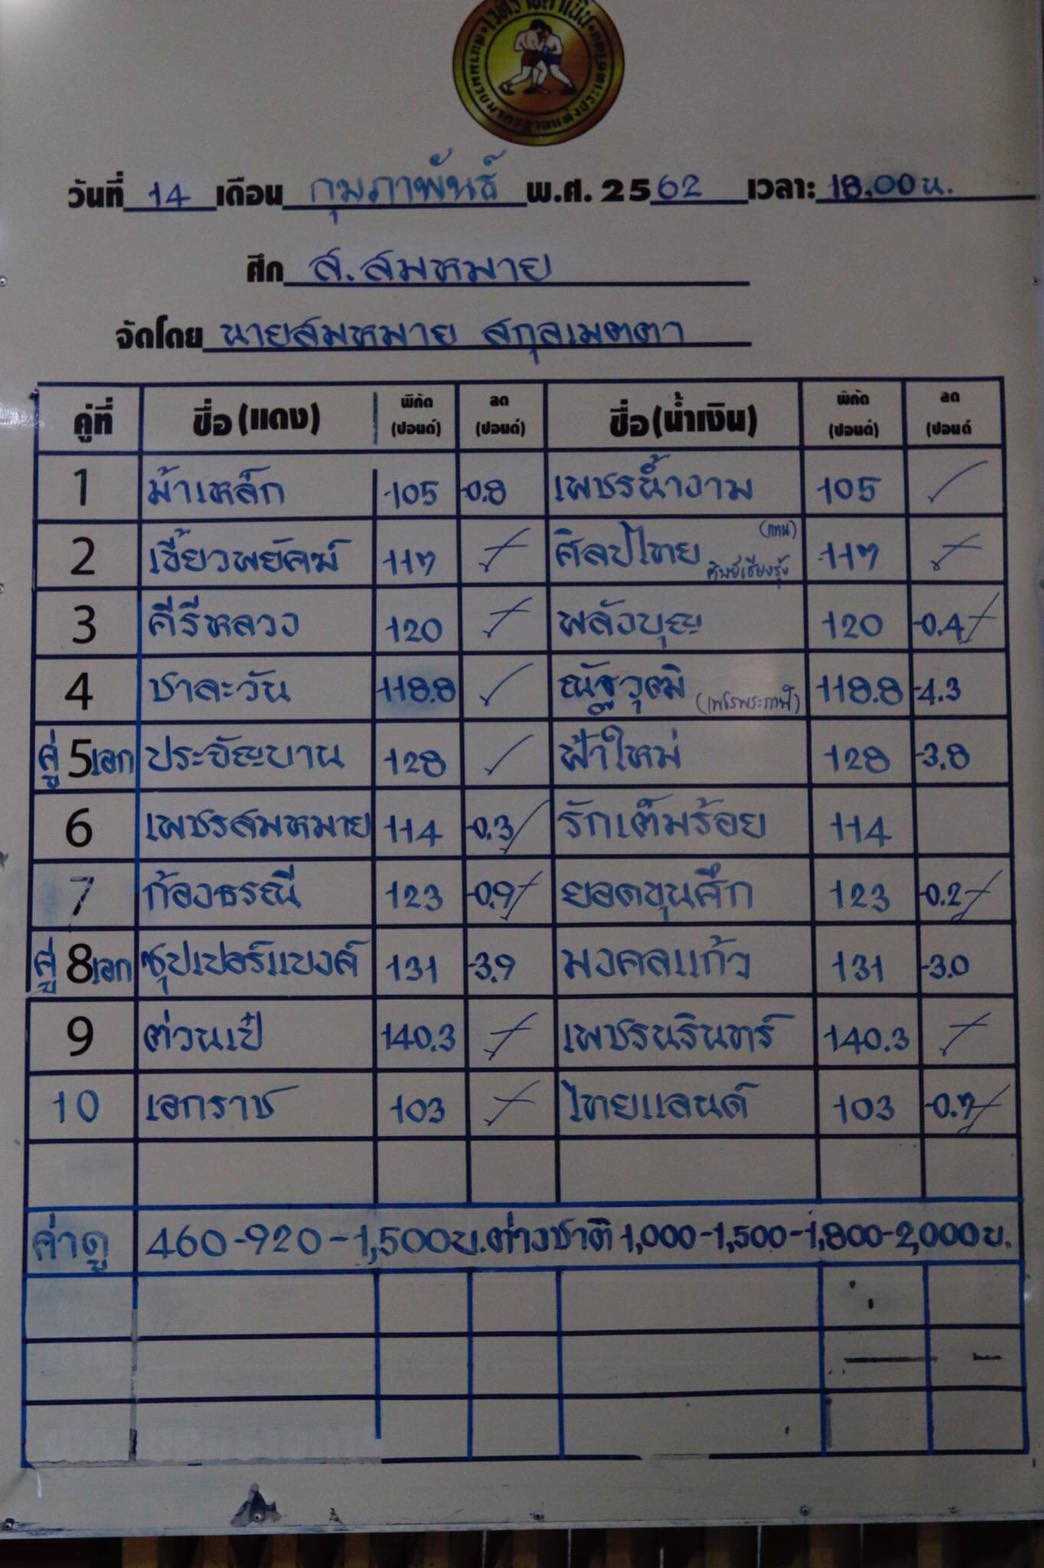 วันที่ 14 เดือน กุมภาพันธ์ พ.ศ. 2562 เวลา: 18.00 น.
ศึก ส.สมหมาย
จัดโดย นายสมหมาย สกุลเมตตา
คู่ที่ ชื่อ (แดง) พิกัด (ปอนด์) ลด (ปอนด์) ชื่อ (น้ำเงิน) พิกัด (ปอนด์) ลด (ปอนด์)
1 ม้าเหล็ก 105 -0.8 เพชรน้ำงาม 105 ✓
2 เขี้ยวพยัคฆ์ 117 ศิลป์ไทย (กทม) 117
3 คีรีหลวง 120 พลังบุญ 120 -0.4
4 ชาละวัน 118.8 ✓ ณัฐวุฒิ 118.8 -4.3
คู่ 5 เอก ประจัญบาน 128 ✓ ฟ้าใหม่ 128 -3.8
6 เพชรสมหมาย 114 -0.3 รักเต็มร้อย 114
7 ก้องธรณี 123 -0.9 ยอดขุนศึก 123 -0.2
คู่ 8 เอก ซุปเปอร์แบงค์ 131 -3.9 มงคลแก้ว 131 -3.0
9 ต่วนเป๋ 140.3 เพชรนรินทร์ 140.3
10 เอกราช 103 ไทยแลนด์ 103 -0.7
ค่าดู 460-920-1,500บ. ต่างชาติ 1,000-1,500-1,800-2,000บ.